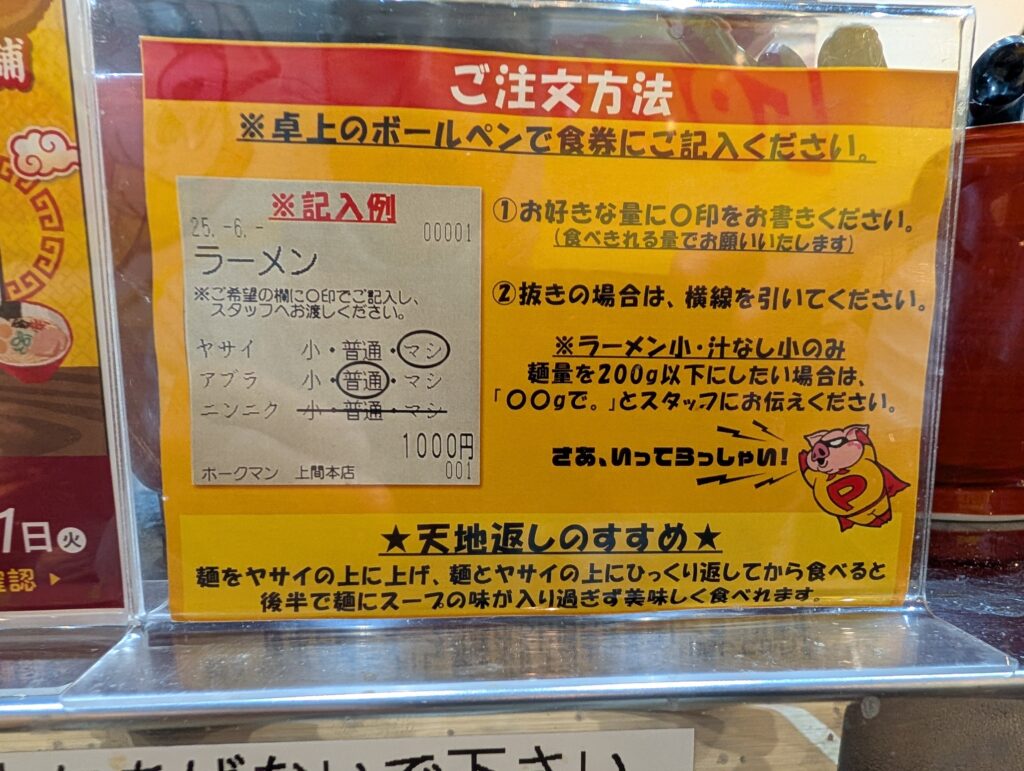 舗
1日火
確認
ご注文方法
※卓上のボールペンで食券にご記入ください。
※記入例
25.-6.-
00001
ラーメン
※ご希望の欄に〇印でご記入し、
スタッフへお渡しください。
ヤサイ 小・普通・マシ
アブラ 小・普通・マシ
ニンニク 小・普通・マシ
1000円
ポークマン 上間本店 001
①お好きな量に〇印をお書きください。
(食べきれる量でお願いいたします)
②抜きの場合は、横線を引いてください。
※ラーメン小・汁なし小のみ
麺量を200g以下にしたい場合は、
「〇〇gで。」とスタッフにお伝えください。
さあ、いってろっしゃい!
P
★天地返しのすすめ★
麺をヤサイの上に上げ、麺とヤサイの上にひっくり返してから食べると
後半で麺にスープの味が入り過ぎず美味しく食べれます。
ないで下さい